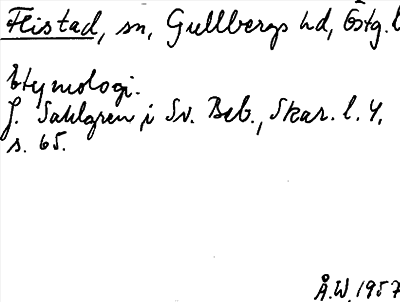 Flistad, sn, Gullbergs hd, Östg. l
Etymologi.
J. Sahlgren i Sv. Beb., Skar. l. 4,
s. 65.
Å.W. 1957